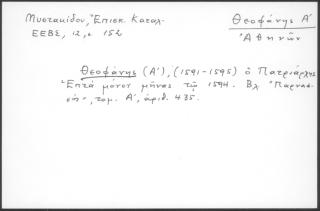 Μυστακίδου, Ἐπισκ. Καταλ.
ΕΕΒΣ, 12, σ. 152
Θεοφάνης Α΄
Ἀθηνῶν
Θεοφάνης (Α΄), (1591-1595) ὁ Πατριάρχης
Ἑπτὰ μόνον μῆνας τῷ 1594. Βλ. "Παρνασ-
σός", τομ. Α΄, ἀριθ. 435.